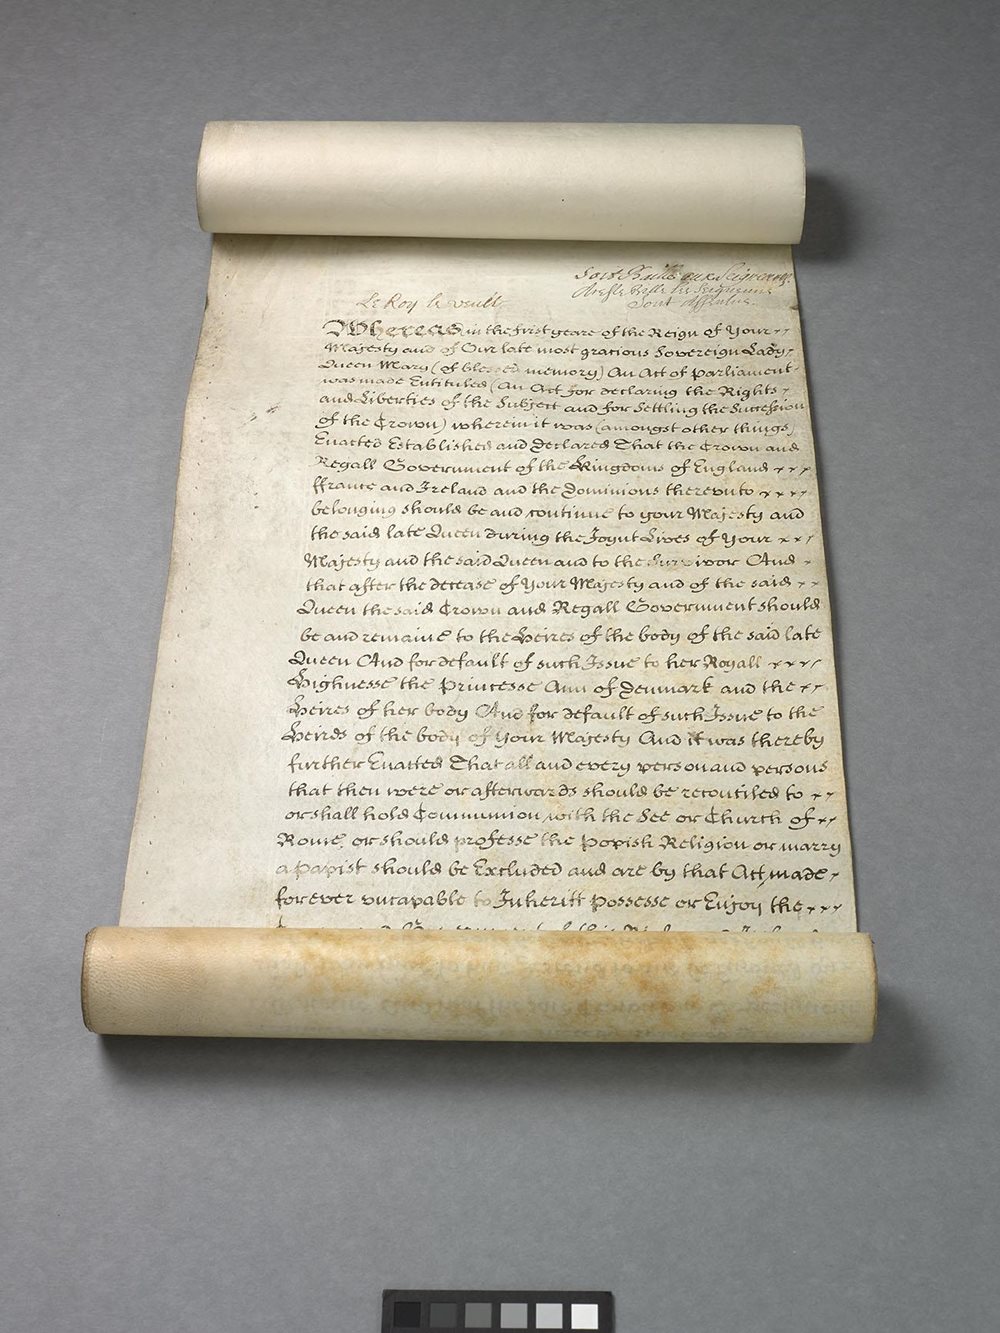 Soit Baillé aux Seigneurs
A cette Bille les Seigneurs
Sont assentus.
Le Roy le veult
Whereas in the first yeare of the Reign of Your
Majesty and of Our late most gracious Sovereign Lady
Queen Mary (of blessed memory) An Act of Parliament
was made Entituled (An Act for declaring the Rights
and Liberties of the Subject and for Settling the Succession
of the Crown) wherein it was (amongst other things)
Enacted Established and Declared That the Crown and
Regall Government of the Kingdoms of England
ffrance and Ireland and the Dominions thereunto
belonging should be and continue to your Majesty and
the said late Queen during the Joynt Lives of Your
Majesty and the said Queen and to the Survivor And
that after the decease of Your Majesty and of the said
Queen the said Crown and Regall Government should
be and remaine to the Heires of the body of the said late
Queen And for default of such Issue to her Royall
Highnesse the Princesse Ann of Denmark and the
Heires of her body And for default of such Issue to the
Heires of the body of Your Majesty And it was thereby
further Enacted That all and every person and persons
that then were or afterwards should be reconciled to
or shall hold Communion with the See or Church of
Rome or should professe the Popish Religion or marry
a Papist should be Excluded and are by that Act made
forever uncapable to Inheritt Possesse or Enjoy the